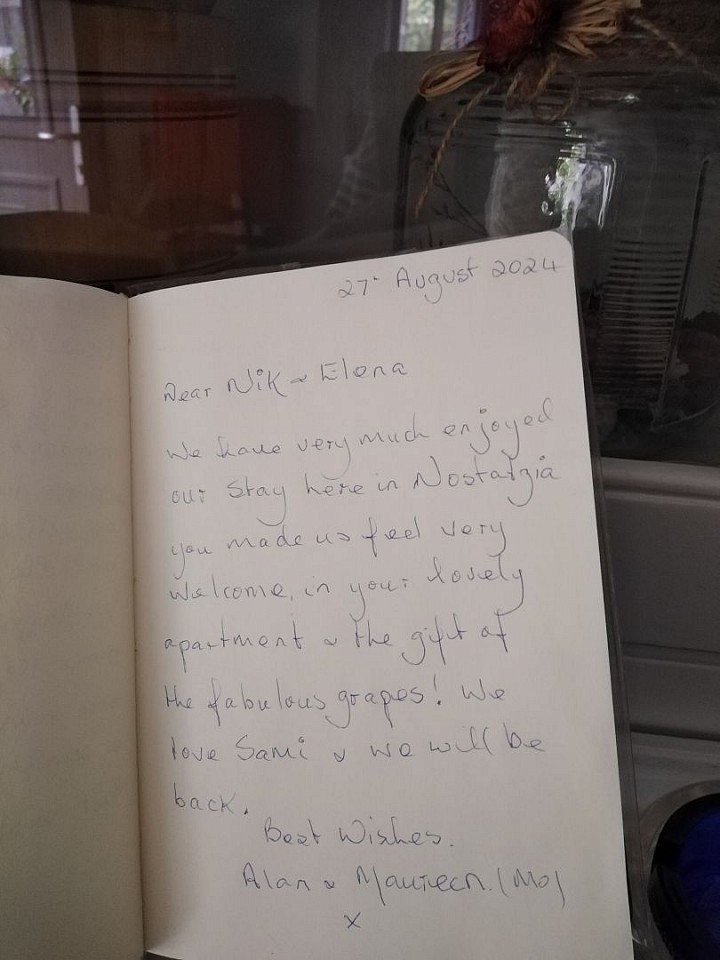 27th August 2024
Dear Nik & Elona
We have very much enjoyed
our stay here in Nostalgia
you made us feel very
welcome, in your lovely
apartment & the gift of
the fabulous grapes! We
love Sami & we will be
back.
Best Wishes.
Alan & Maureen. (Mo)
x